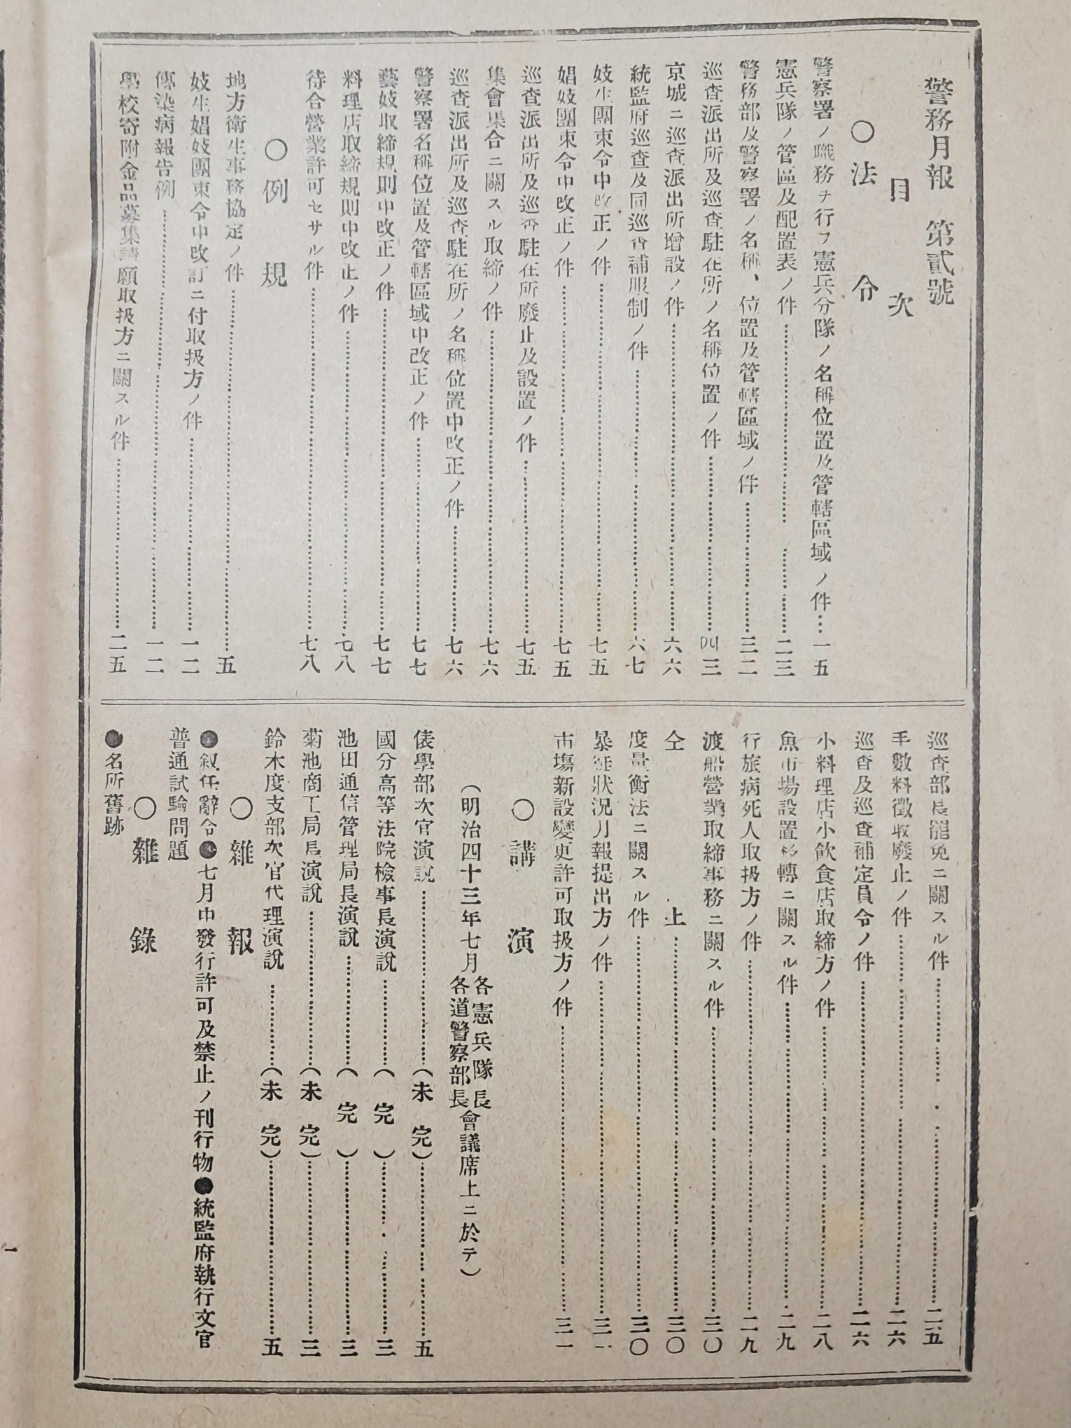 警務月報　第貳號
目次
〇法令
警察署ノ職務ヲ行フ憲兵分隊ノ名稱位置及管轄區域ノ件…一五
憲兵隊ノ管區及配置表ノ件…二三
警務部及警察署ノ名稱、位置及管轄區域ノ件…三二
巡査派出所及巡査駐在所ノ名稱位置ノ件…四三
京城ニ巡査派出所增設ノ件…六六
統監府巡査及同巡査補服制ノ件…六七
妓生團束令中改正ノ件…七五
娼妓團束令中改正ノ件…七五
巡査派出所及巡査駐在所廢止及設置ノ件…七五
集會集合ニ關スル取締ノ件…七六
巡査派出所及巡査駐在所ノ名稱位置中改正ノ件…七六
警察署名稱位置及管轄區域中改正ノ件…七七
藝妓取締規則中改正ノ件…七七
料理店取締規則中改正ノ件…七八
待合營業許可セサル件…七八
〇例規
地方衛生事務協定ノ件…五
妓生娼妓團束令中改訂ニ付取扱方ノ件…一二
傳染病報告例…一二
學校寄附金品募集請願取扱方ニ關スル件…二五
巡査部長罷免ニ關スル件…二五
手數料徵收廢止ノ件…二六
巡査及巡査補定員令ノ件…二六
小料理店小飮食店取締方ノ件…二八
魚市場設置移轉ニ關スル件…二九
行旅病死人取扱方ノ件…二九
渡船營業取締事務ニ關スル件…三〇
仝上…三〇
度量衡法ニ關スル件…三〇
暴徒狀況月報提出方ノ件…三一
市塲新設變更許可取扱方ノ件…三一
〇講演
（明治四十三年七月各憲兵隊長各道警察部長會議席上ニ於テ）
俵學部次官演說…（未完）…五
國分高等法院檢事長演說…（完）…三
池田通信管理局長演說…（完）…三
菊池商工局長演說…（未完）…三
鈴木度支部次官代理演說…（未完）…五
〇雜報
●敍任辭令●七月中發行許可及禁止ノ刊行物●統監府執行文官
普通試驗問題
〇雜錄
●名所舊跡
一